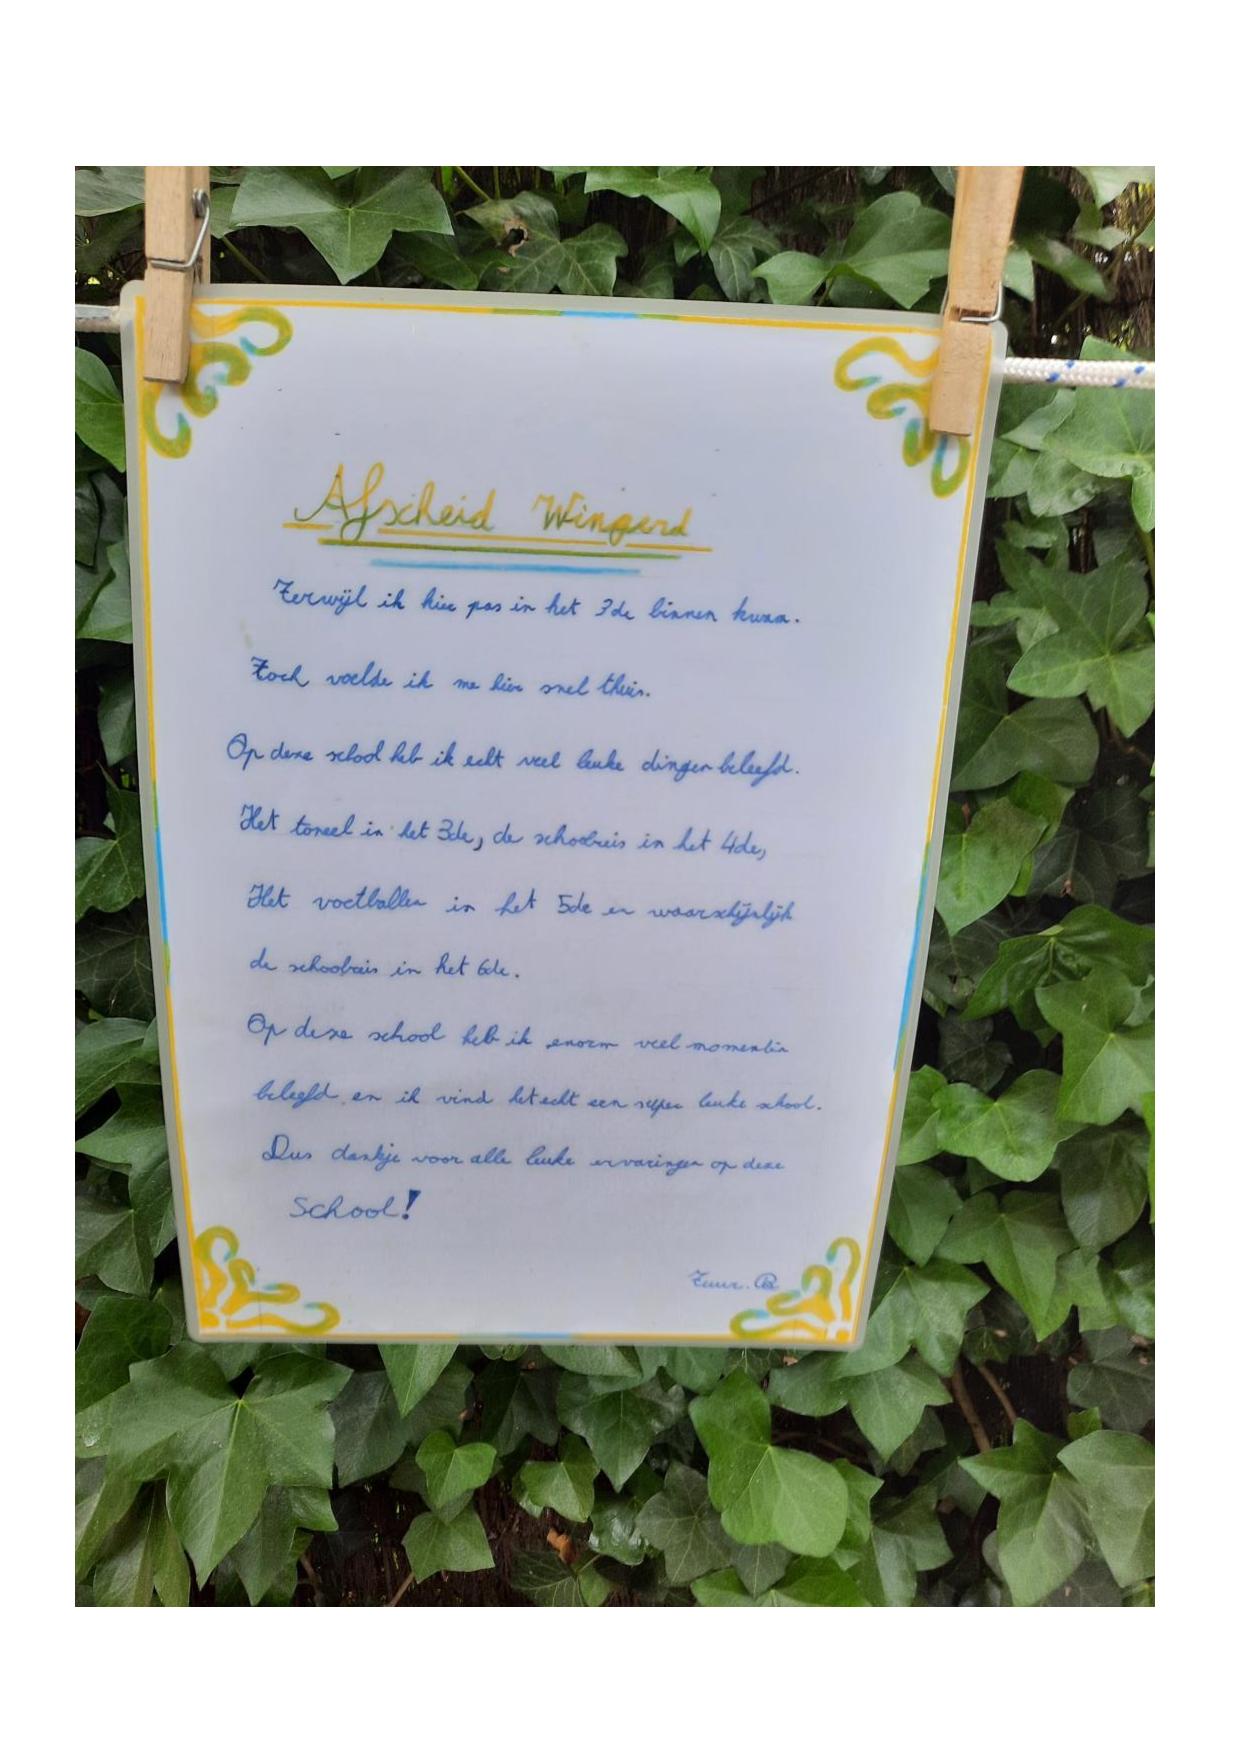 Afscheid Wingerd
Terwijl ik hier pas in het 3de binnen kwam.
Toch voelde ik me hier snel thuis.
Op deze school heb ik echt veel leuke dingen beleefd.
Het toneel in het 3de, de schoolreis in het 4de,
Het voetballen in het 5de en waarschijnlijk
de schoolreis in het 6de.
Op deze school heb ik enorm veel momenten
beleefd en ik vind het echt een super leuke school.
Dus dankje voor alle leuke ervaringen op deze
School!